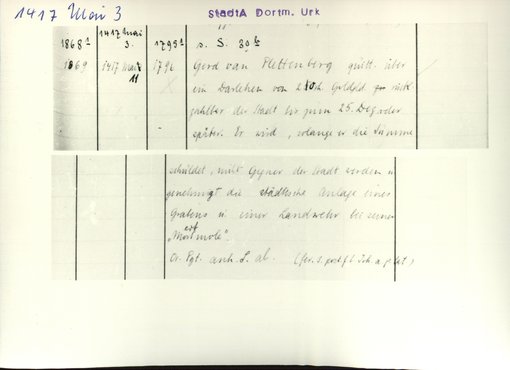 1417 Mai 3
StadtA Dortm. Urk
1868¹ 1417 Mai 3. 1795¹ s. S. 39b
1869 1417 Mai 11 1796 Gerd van Plettenberg quitt. über
ein Darlehen von 210 rh. Guld. rück
zahlbar der Stadt bis zum 25. Dez. oder
später. Er wird, solange er die Summe
schuldet, nicht Gegner der Stadt werden u
genehmigt die städtische Anlage eines
Grabens u einer Landwehr bei seiner
Or. Pgt. anh. S. ab. (fer. 3. post